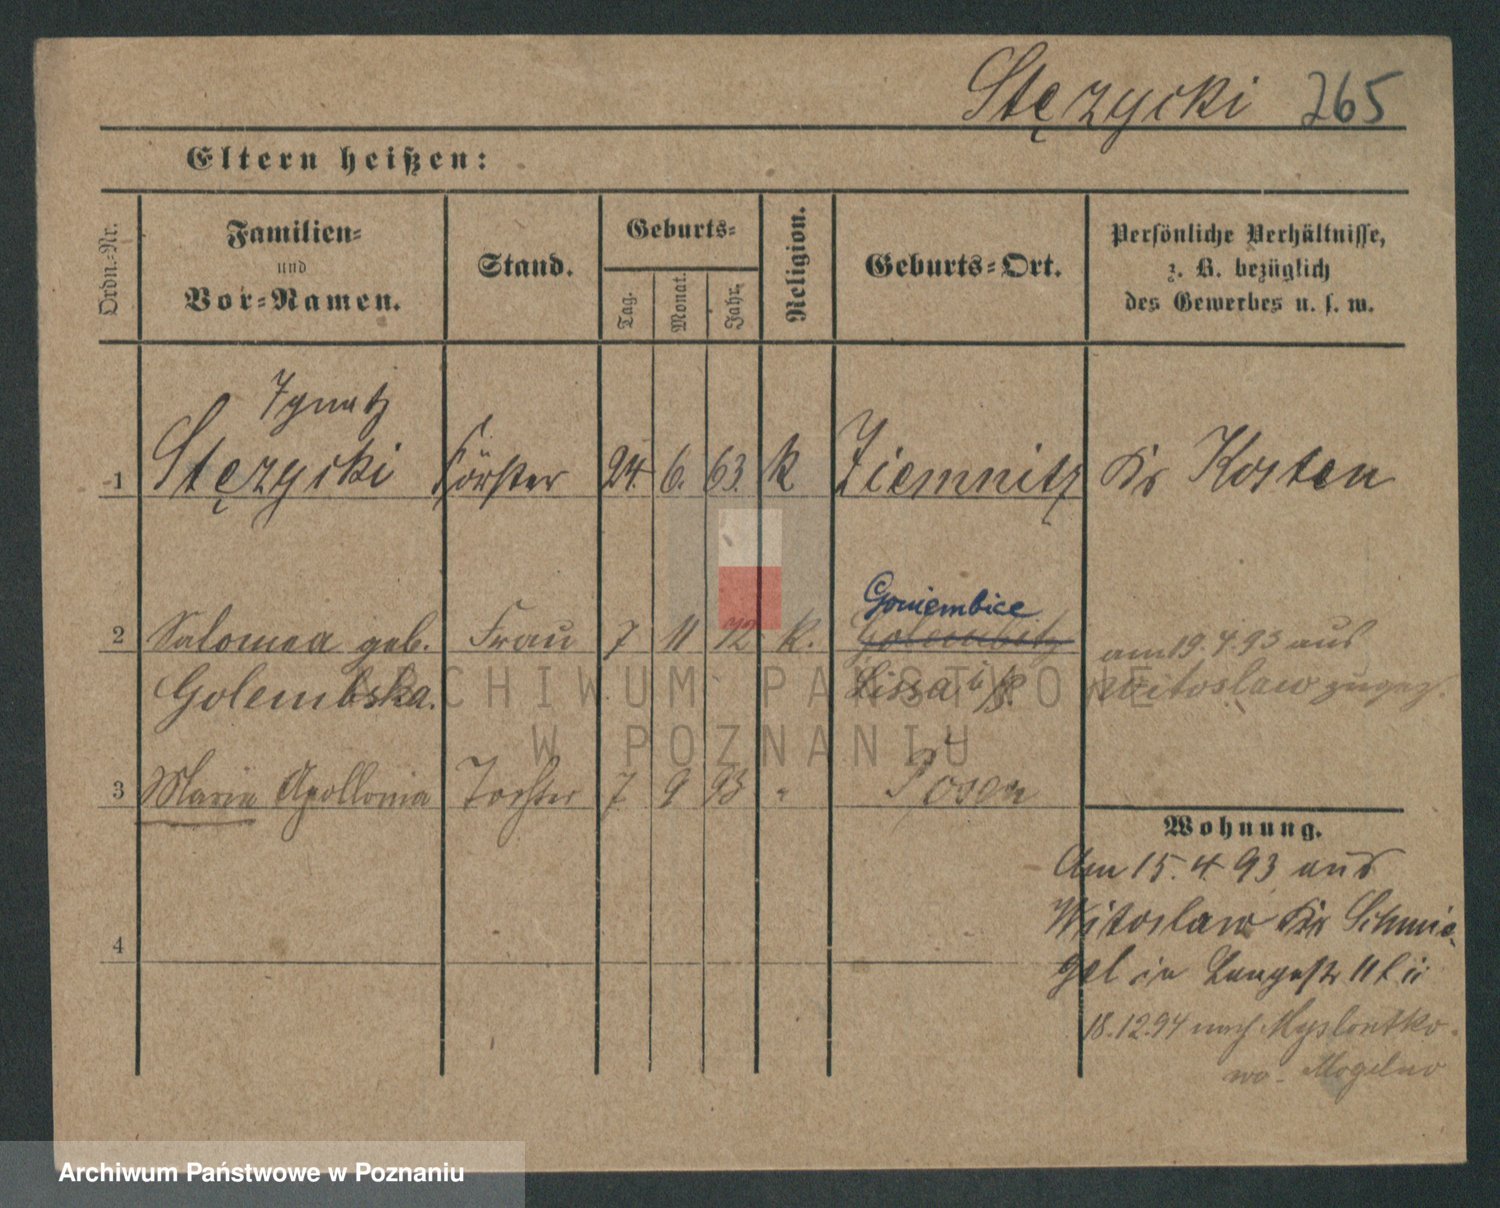 Stęzycki 265
Eltern heißen:
Ordn.-Nr.
Familien-
und
Vor-Namen.
Stand.
Geburts-
Tag.
Monat.
Jahr.
Religion.
Geburts-Ort.
Persönliche Verhältnisse,
z. B. bezüglich
des Gewerbes u. s. w.
Ignatz
1 Stęzycki Förster 24. 6. 63. k Ziemnitz Kr Kosten
Goniembice
2 Salomea geb. Frau 7 11 72 k. Golembitz am 19.4.93 aus
Golembska. Lissa i/P. Witoslaw zugez.
3 Maria Apollonia Tochter 7 9 93 " Posen
Wohnung.
Am 15. 4 93 aus
Witoslaw Kr Schmie-
gel in Langestr 11
18.12.94 nach Myslontko-
wo - Mogilno
4
ARCHIWUM PAŃSTWOWE
W POZNANIU
Archiwum Państwowe w Poznaniu